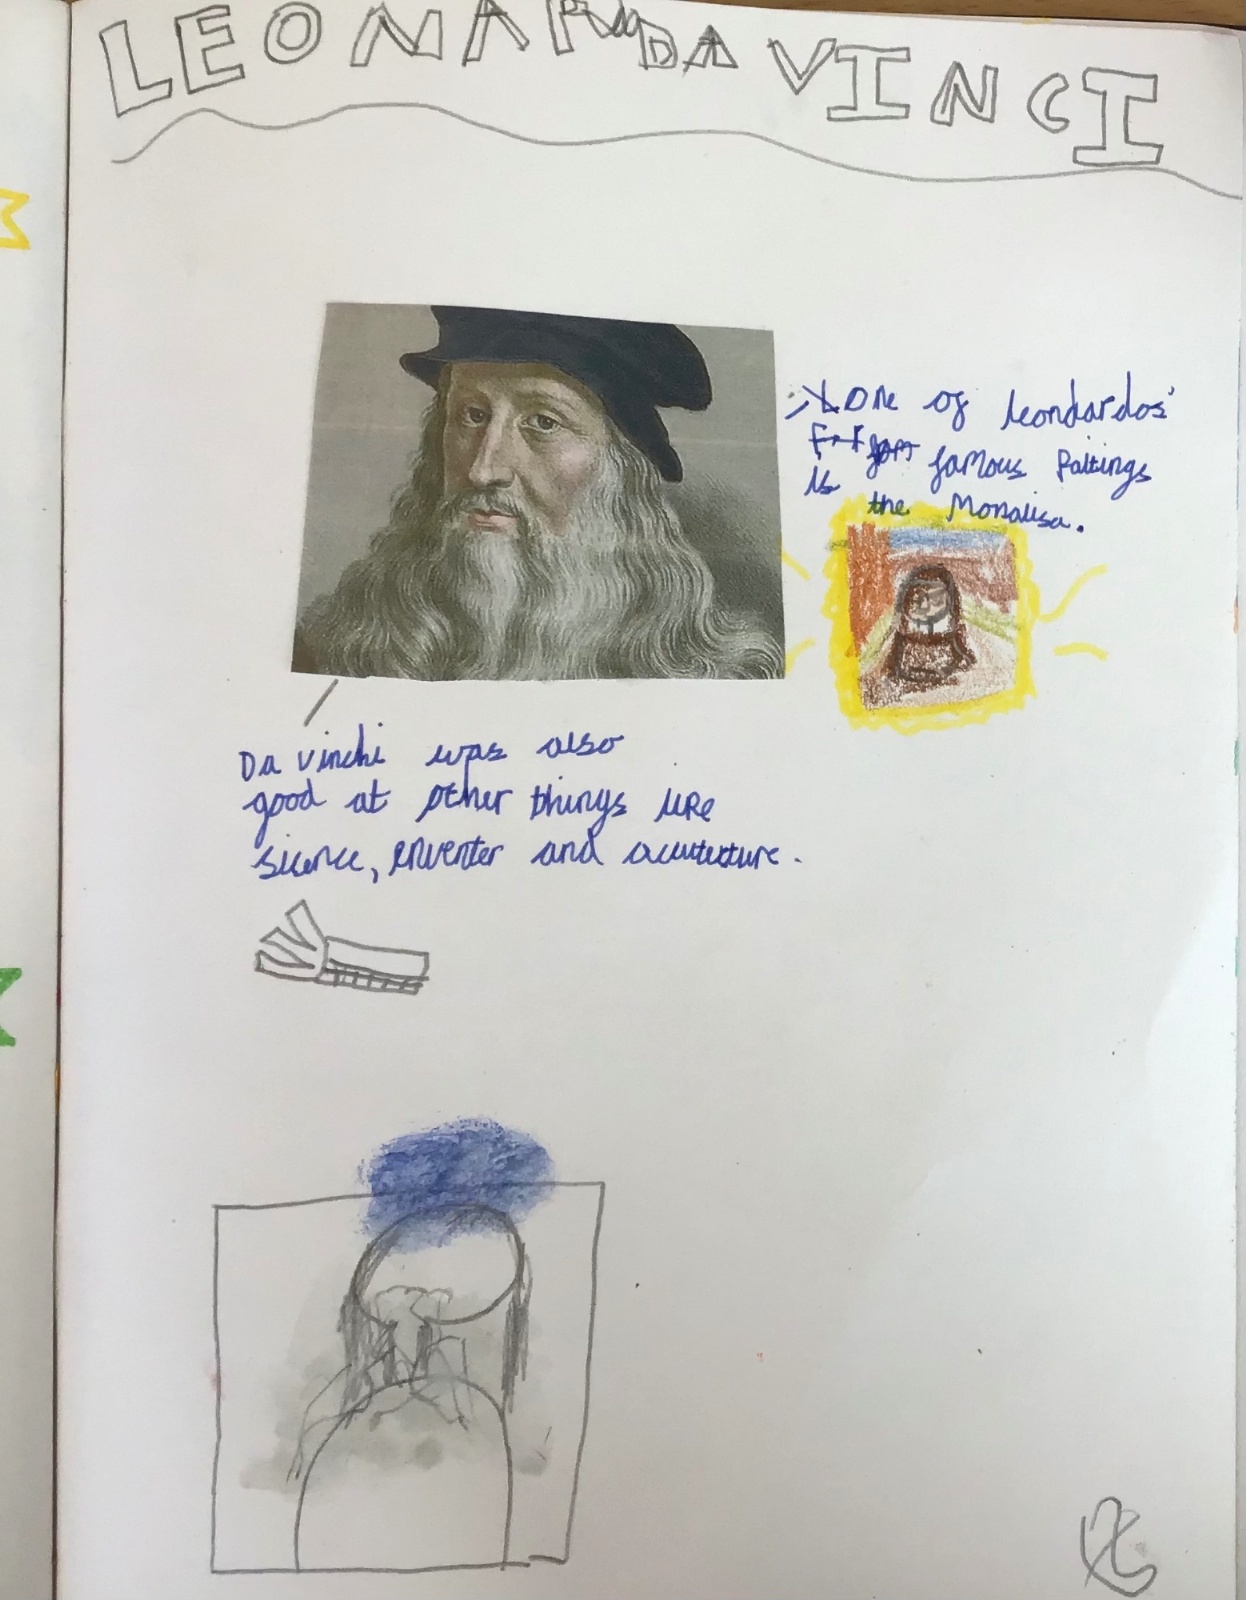 LEONARDDA VINCI
One of leondardos'
famous Paltings
is the Monalisa.
Da Vinchi was also
good at other things like
sicence, enventer and acutecture.